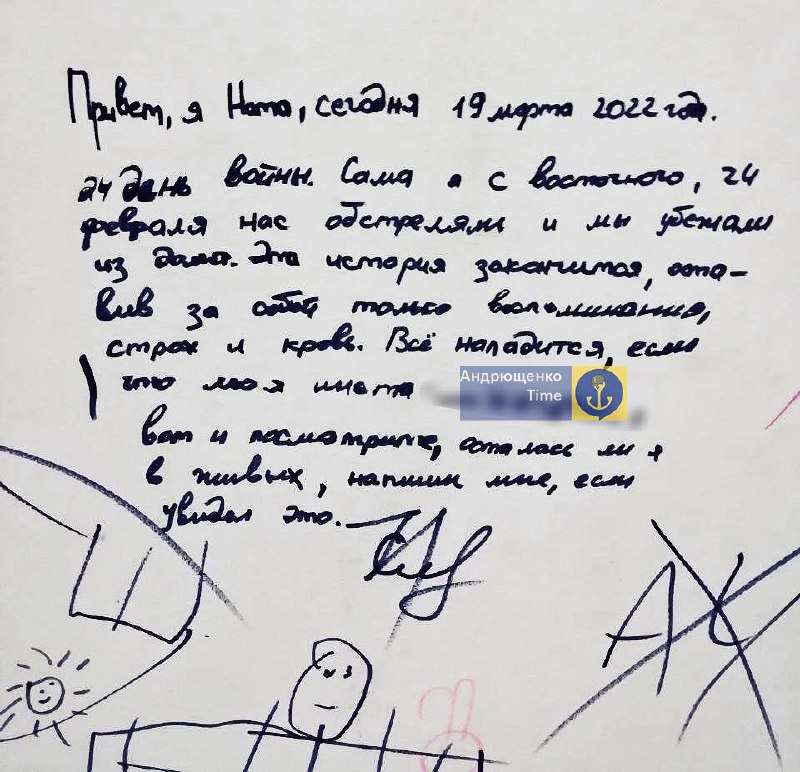 Привет, я Ната, сегодня 19 марта 2022 год.
24 день войны. Сама я с восточного, 24
февраля нас обстреляли и мы убежали
из дома. Эта история закончится, оста-
вив за собой только воспоминания,
страх и кровь. Всё наладится, если
что моя инста
Андрющенко
Time
вот и посмотрите, осталась ли я
в живых, напиши мне, если
увидел это.